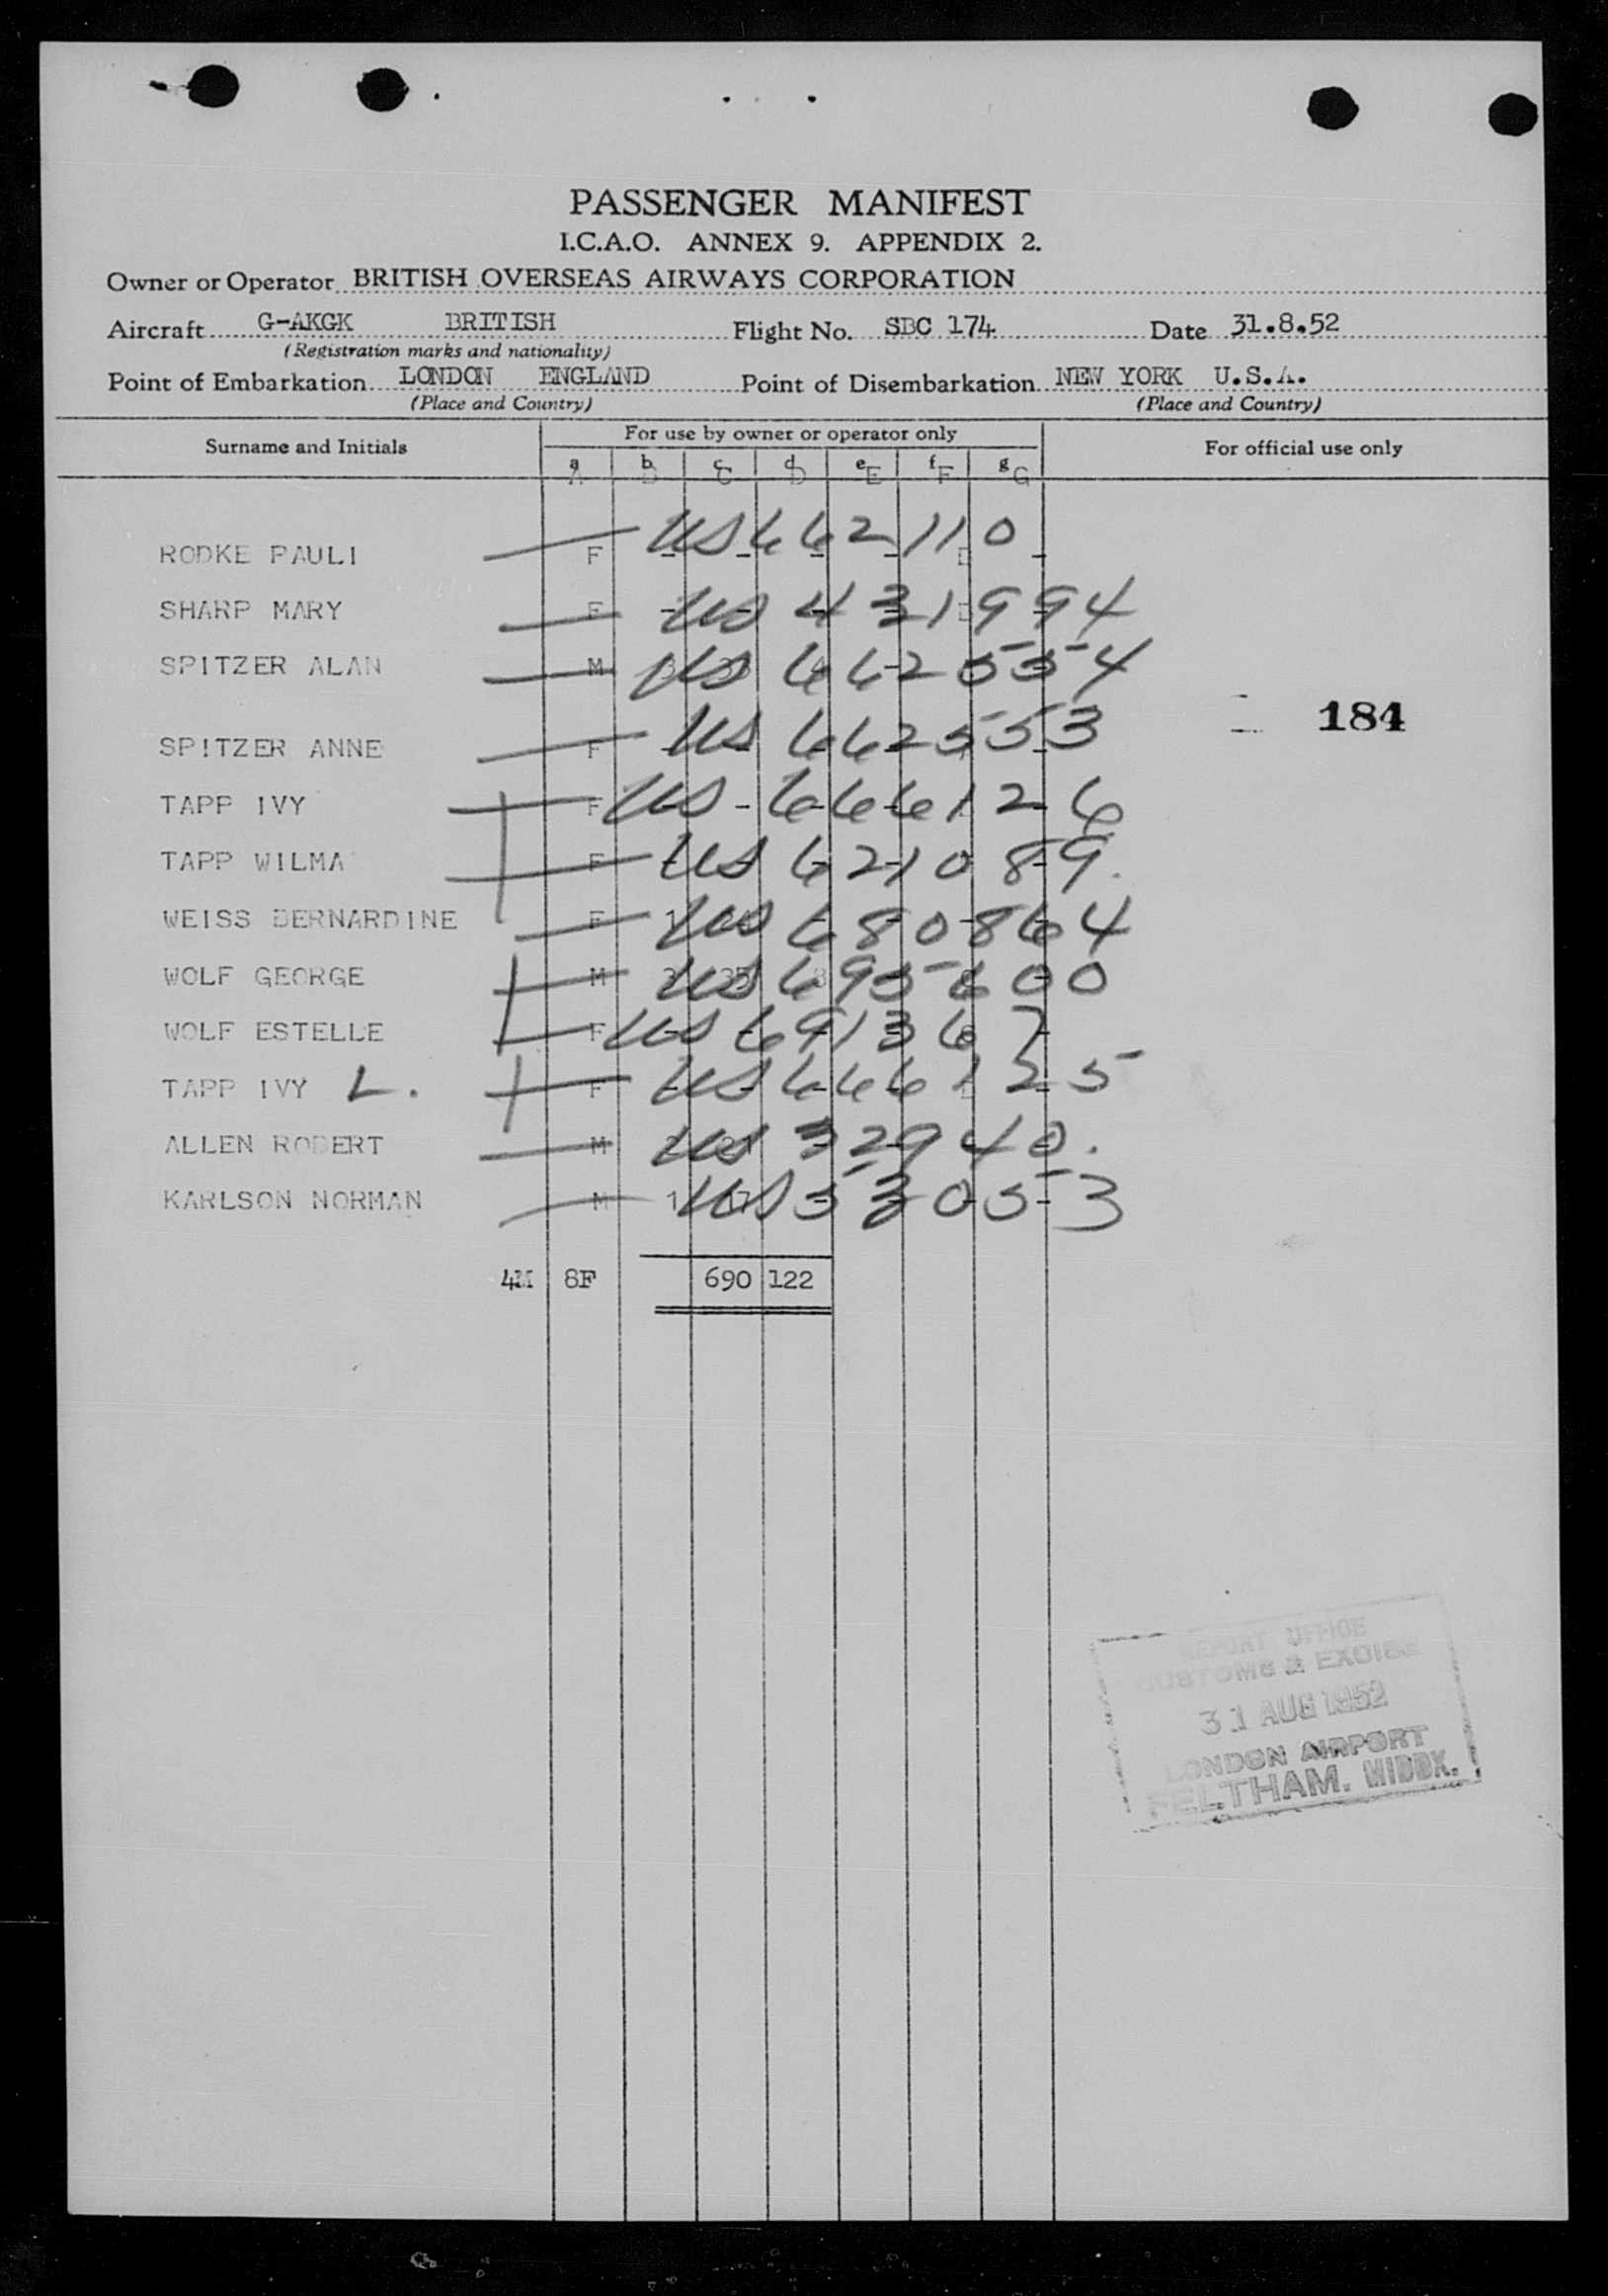 PASSENGER MANIFEST
I.C.A.O. ANNEX 9. APPENDIX 2.
Owner or Operator BRITISH OVERSEAS AIRWAYS CORPORATION
Aircraft G-AKGK BRITISH Flight No. SBC 174 Date 31.8.52
(Registration marks and nationality)
Point of Embarkation LONDON ENGLAND Point of Disembarkation NEW YORK U.S.A.
(Place and Country) (Place and Country)
Surname and Initials For use by owner or operator only For official use only
a b c d e f g
A B C D E F G
RODKE PAULI F US 662110
SHARP MARY F US 431994
SPITZER ALAN M US 662554
184
SPITZER ANNE F US 662553
TAPP IVY F US 666126
TAPP WILMA F US 621089.
WEISS BERNARDINE F US 680864
WOLF GEORGE M US 695600
WOLF ESTELLE F US 691367
TAPP IVY L. F US 666125
ALLEN ROBERT M US 32940.
KARLSON NORMAN M US 530553
4M 8F 690 122
REPORT OFFICE
CUSTOMS & EXCISE
31 AUG 1952
LONDON AIRPORT
FELTHAM. MIDDX.